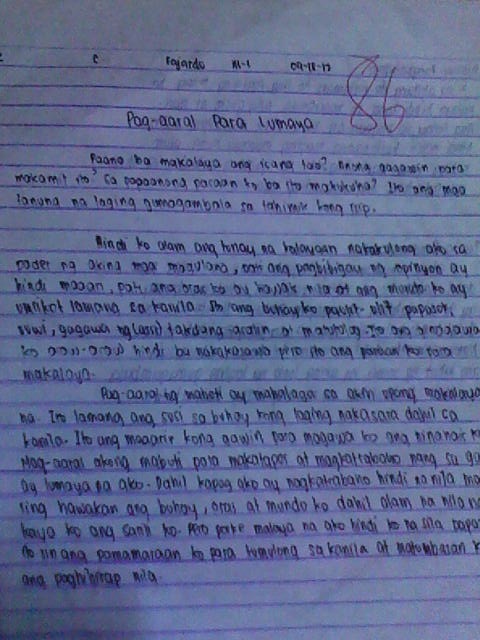 c Fajardo III-1 09-18-13
86
Pag-aaral Para Lumaya
Paano ba makalaya ang isang tao? Anong gagawin para
makamit ito? Sa papaanong paraan ko ba ito makukuha? Ito ang mga
tanung na laging gumagambala sa tahimik kong isip.
Hindi ko alam ang tunay na kalayaan nakakulong ako sa
pader ng aking mga magulang, pati ang pagbibigay ng opinyon ay
hindi maaari, pati ang oras ko ay hawak nila at ang mundo ko ay
umiikot lamang sa kanila. Ito ang buhay ko paulit-ulit papasok,
uuwi, gagawa ng takdang aralin at matutulog. Ito ang ginagawa
ko araw-araw hindi ba nakakasawa pero ito ang paraan ko para
makalaya.
Pag-aaral ng mabuti ay mahalaga sa akin upang makalaya
na. Ito lamang ang susi sa buhay kong laging nakasara dahil sa
kanila. Ito ang maaari kong gawin para magawa ko ang ninanais
Mag-aaral akong mabuti para makatapos at magkatrabaho nang sa
ay lumaya na ako. Dahil kapag ako ay nagkatrabaho hindi na nila
ring hawakan ang buhay, oras at mundo ko dahil alam na nila na
kaya ko ang sarili ko. Pero porke malaya na ako hindi ko na sila
Ito rin ang pamamaraan ko para tumulong sa kanila at matumbasan
ang paghihirap nila.